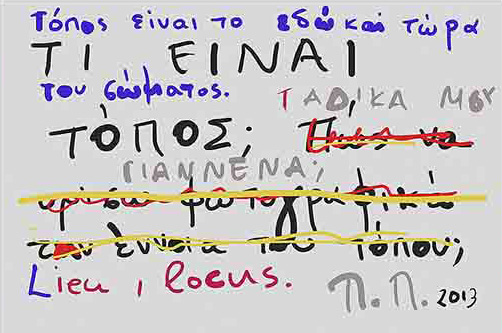 Τόπος είναι το εδώ και τώρα
ΤΙ ΕΙΝΑΙ
του σώματος.
ΤΑ ΔΙΚΑ ΜΟΥ
ΤΌΠΟΣ; Πώς να
ΓΙΑΝΝΕΝΑ;
ορίσω φωτογραφικά
την έννοια του τόπου;
Lieu, locus.
Π.Π. 2013